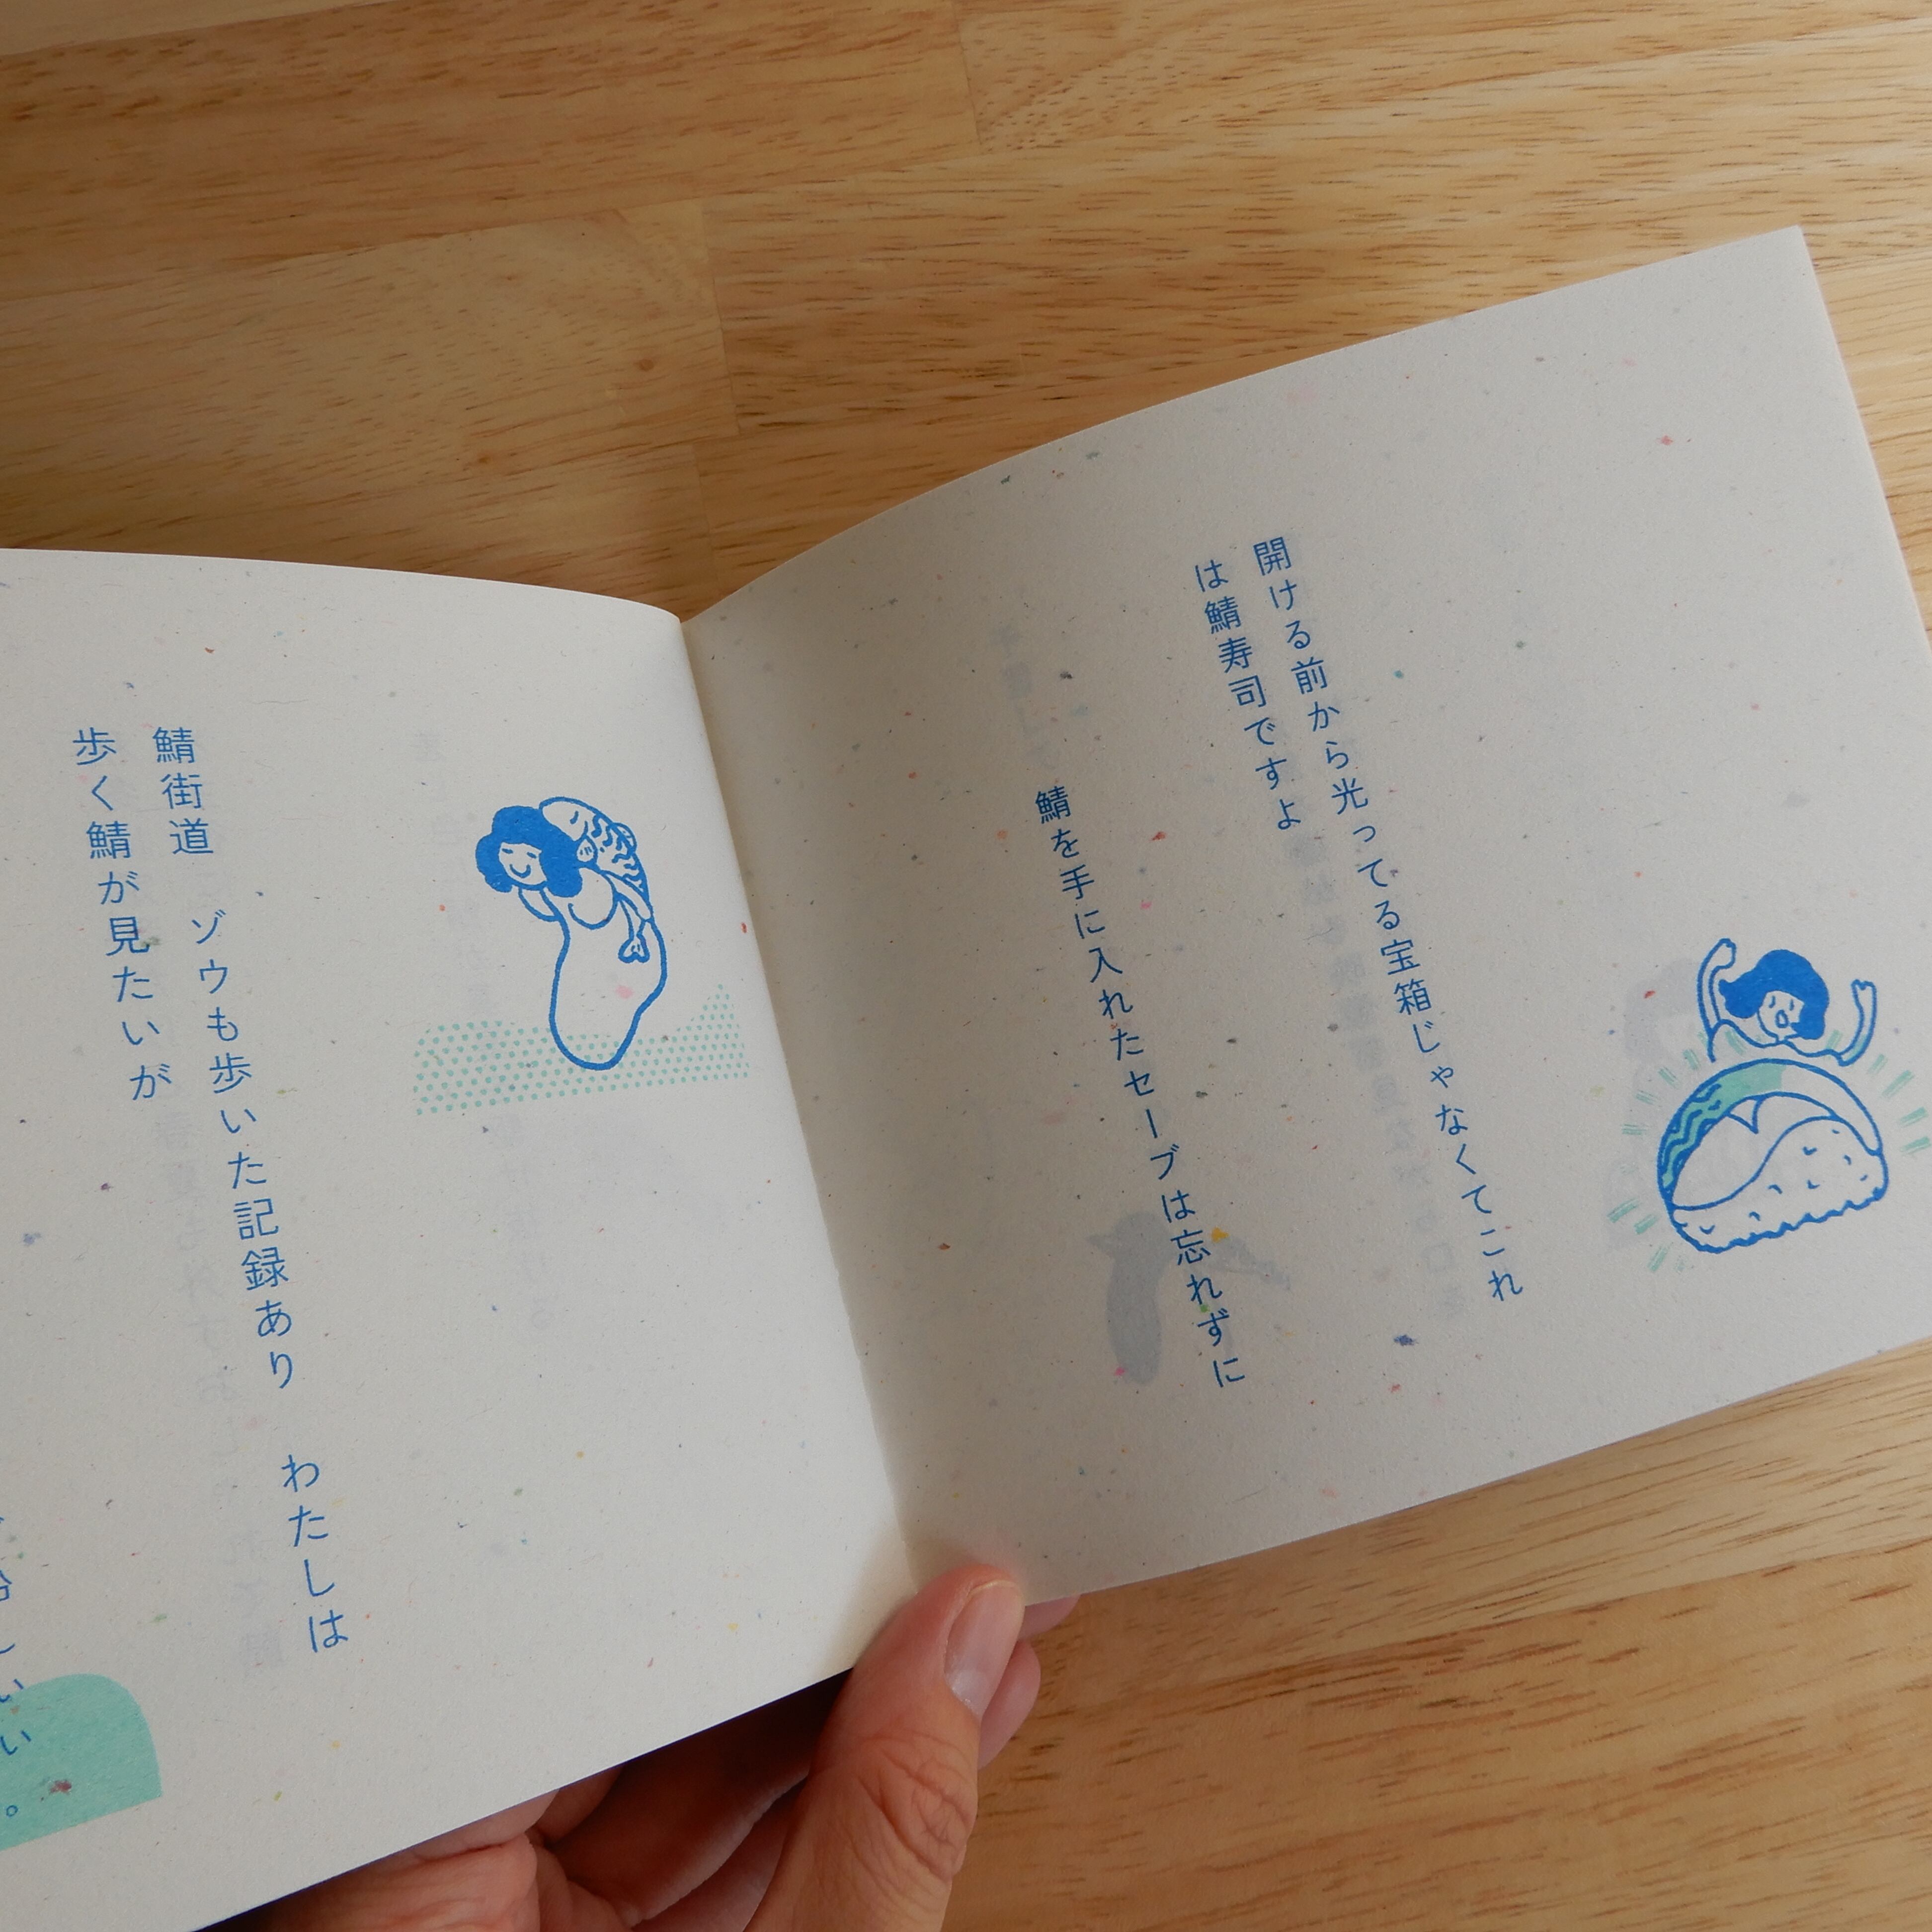 開ける前から光ってる宝箱じゃなくてこれ
は鯖寿司ですよ
鯖を手に入れたセーブは忘れずに
鯖街道　ゾウも歩いた記録あり　わたしは
歩く鯖が見たいが
しいい。